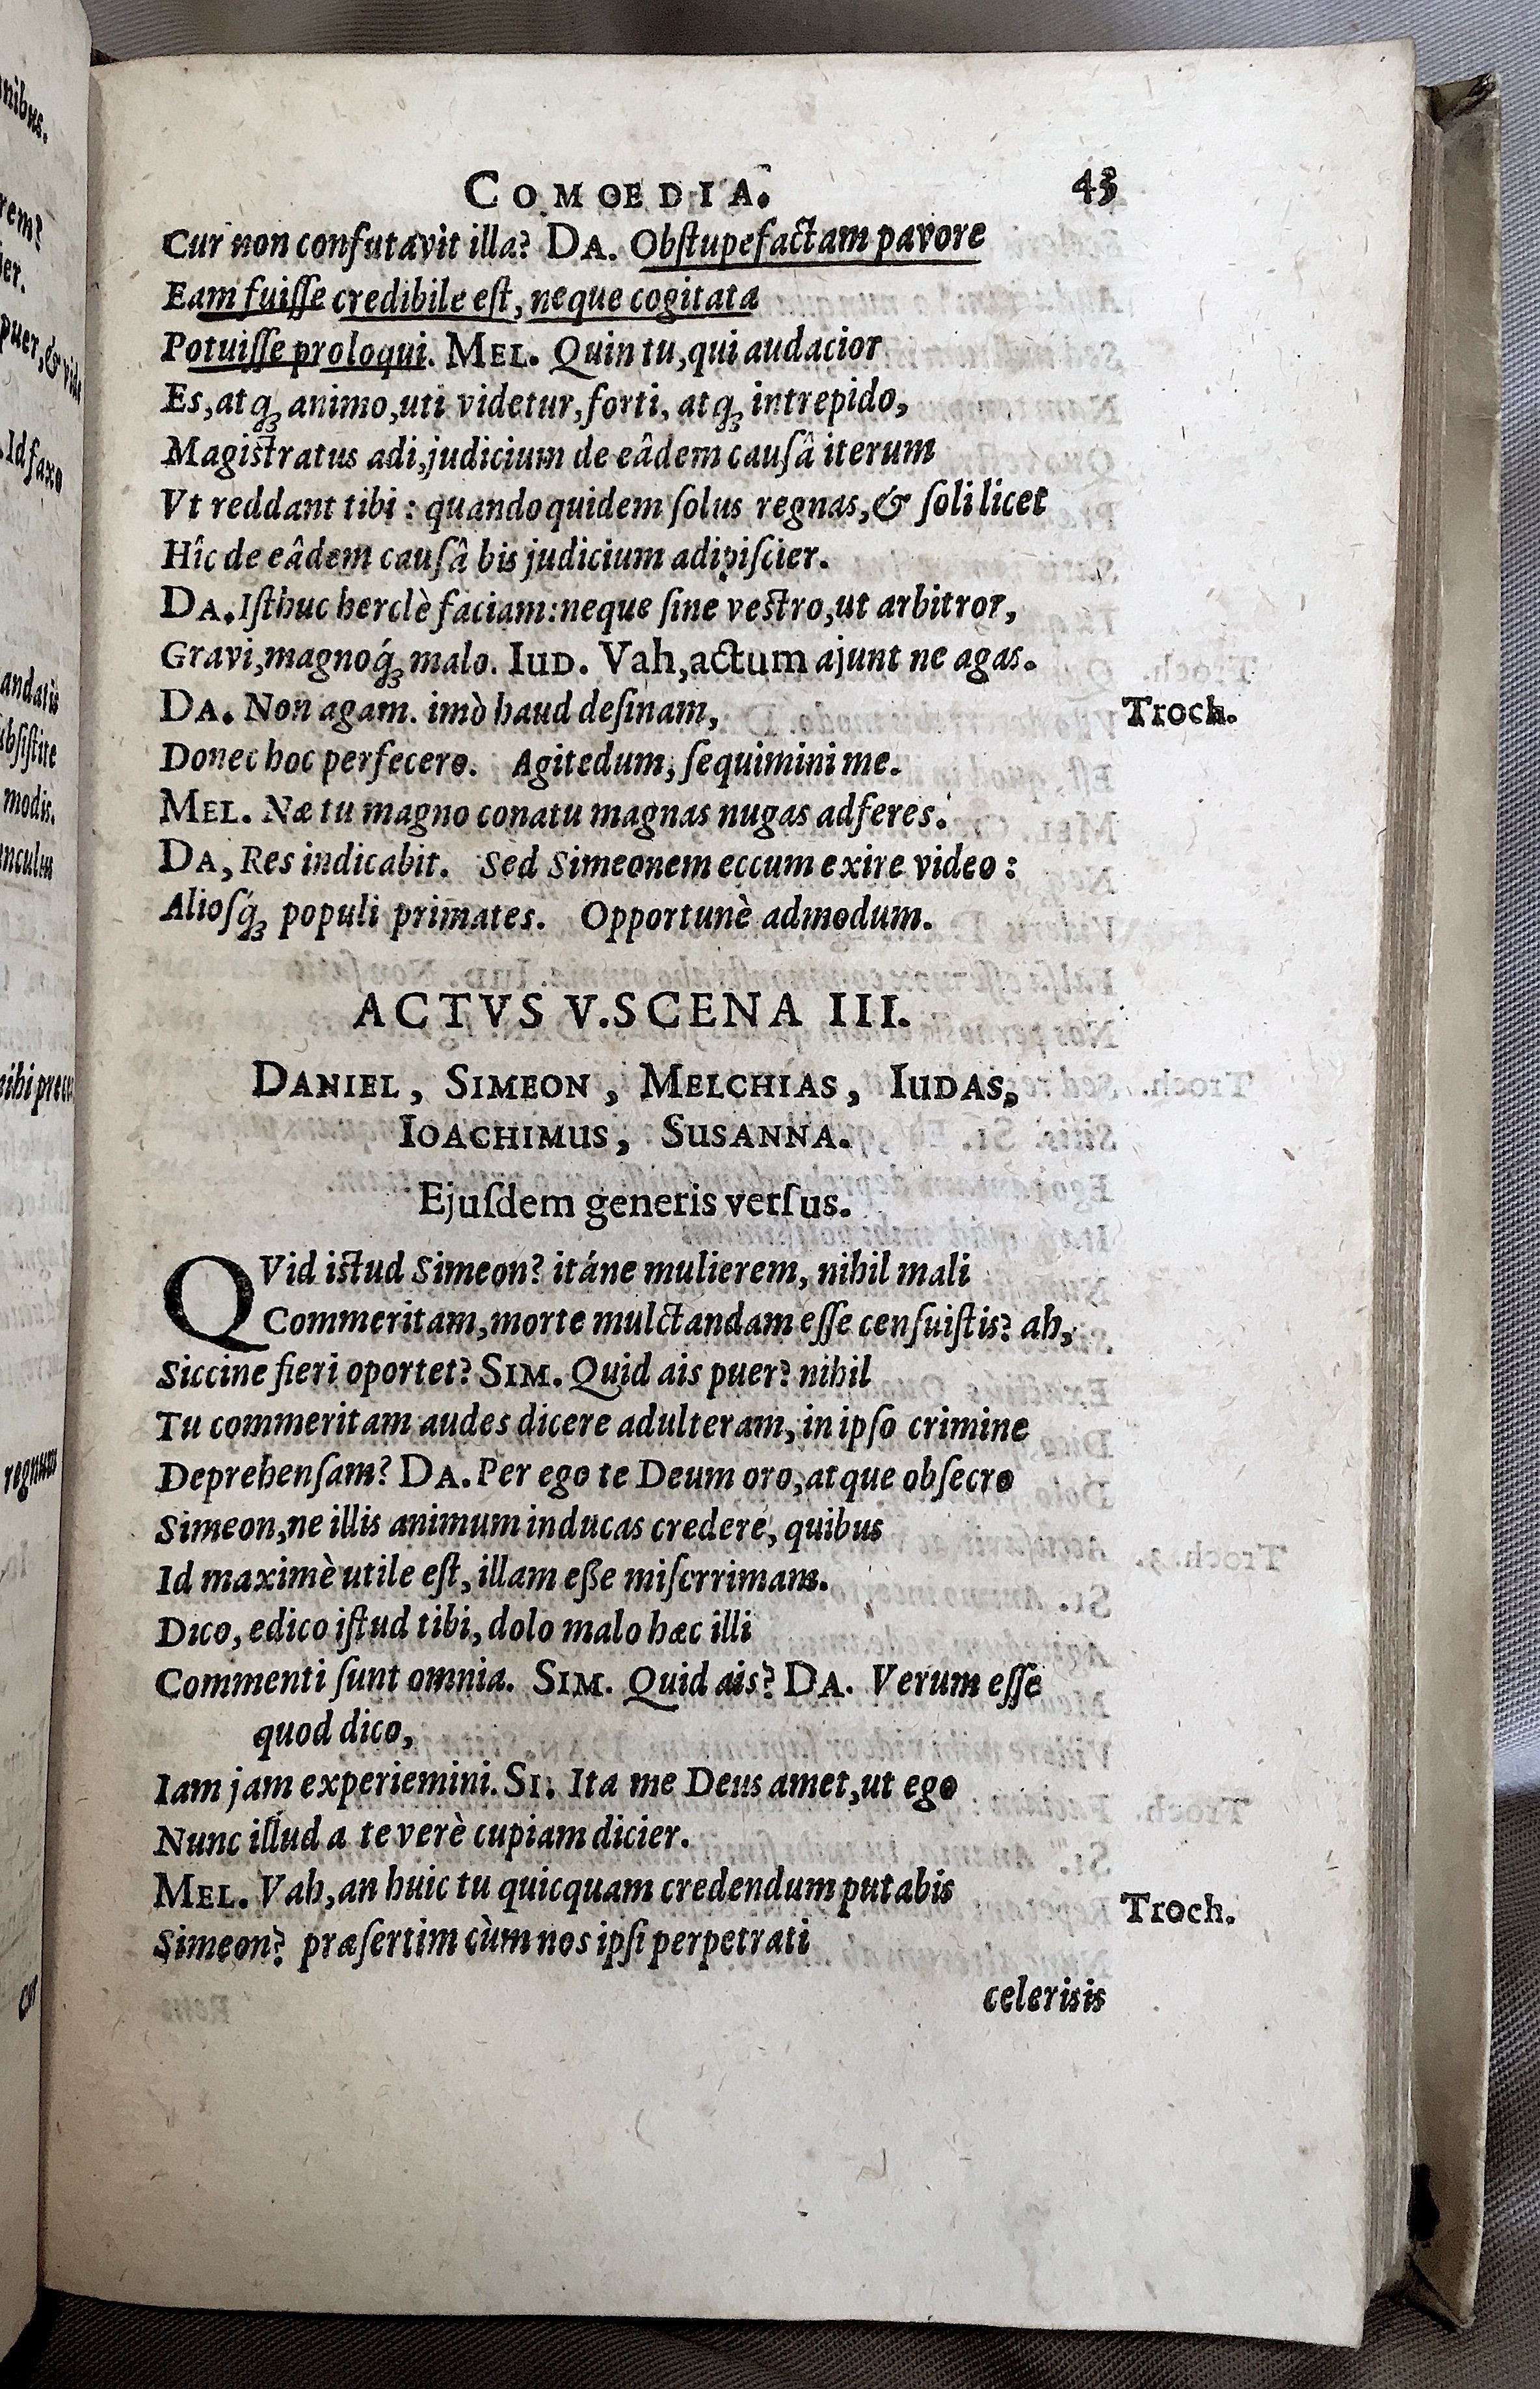 COMOEDIA. 43
Cur non confutavit illa? DA. Obſtupefactam pavore
Eam fuiſſe credibile eſt, neque cogitata
Potuiſſe proloqui. MEL. Quin tu, qui audacior
Es, atq; animo, uti videtur, forti, atq; intrepido,
Magistratus adi, judicium de eâdem cauſâ iterum
Vt reddant tibi: quandoquidem ſolus regnas, & ſoli licet
Hîc de eâdem cauſâ bis judicium adipiſcier.
DA. Iſthuc herclè faciam: neque ſine vestro, ut arbitror,
Gravi, magnoq́; malo. IUD. Vah, actum ajunt ne agas.
DA. Non agam. imò haud deſinam, Troch.
Donec hoc perfecero. Agitedum, ſequimini me.
MEL. Næ tu magno conatu magnas nugas adferes.
DA, Res indicabit. Sed Simeonem eccum exire video:
Alioſq́; populi primates. Opportunè admodum.
ACTVS V. SCENA III.
DANIEL, SIMEON, MELCHIAS, IUDAS,
IOACHIMUS, SUSANNA.
Ejuſdem generis verſus.
QVid istud Simeon? itáne mulierem, nihil mali
Commeritam, morte mulctandam eſſe cenſuiſtis? ah,
Siccine fieri oportet? SIM. Quid ais puer? nihil
Tu commeritam audes dicere adulteram, in ipſo crimine
Deprehenſam? DA. Per ego te Deum oro, atque obſecro
Simeon, ne illis animum inducas credere, quibus
Id maximè utile eſt, illam eſse miſerrimam.
Dico, edico iſtud tibi, dolo malo hæc illi
Commenti ſunt omnia. SIM. Quid ais? DA. Verum eſſe
quod dico,
Iam jam experiemini. SI. Ita me Deus amet, ut ego
Nunc illud a te verè cupiam dicier.
MEL. Vah, an huic tu quicquam credendum putabis Troch.
Simeon? præſertim cùm nos ipſi perpetrati
celerisis